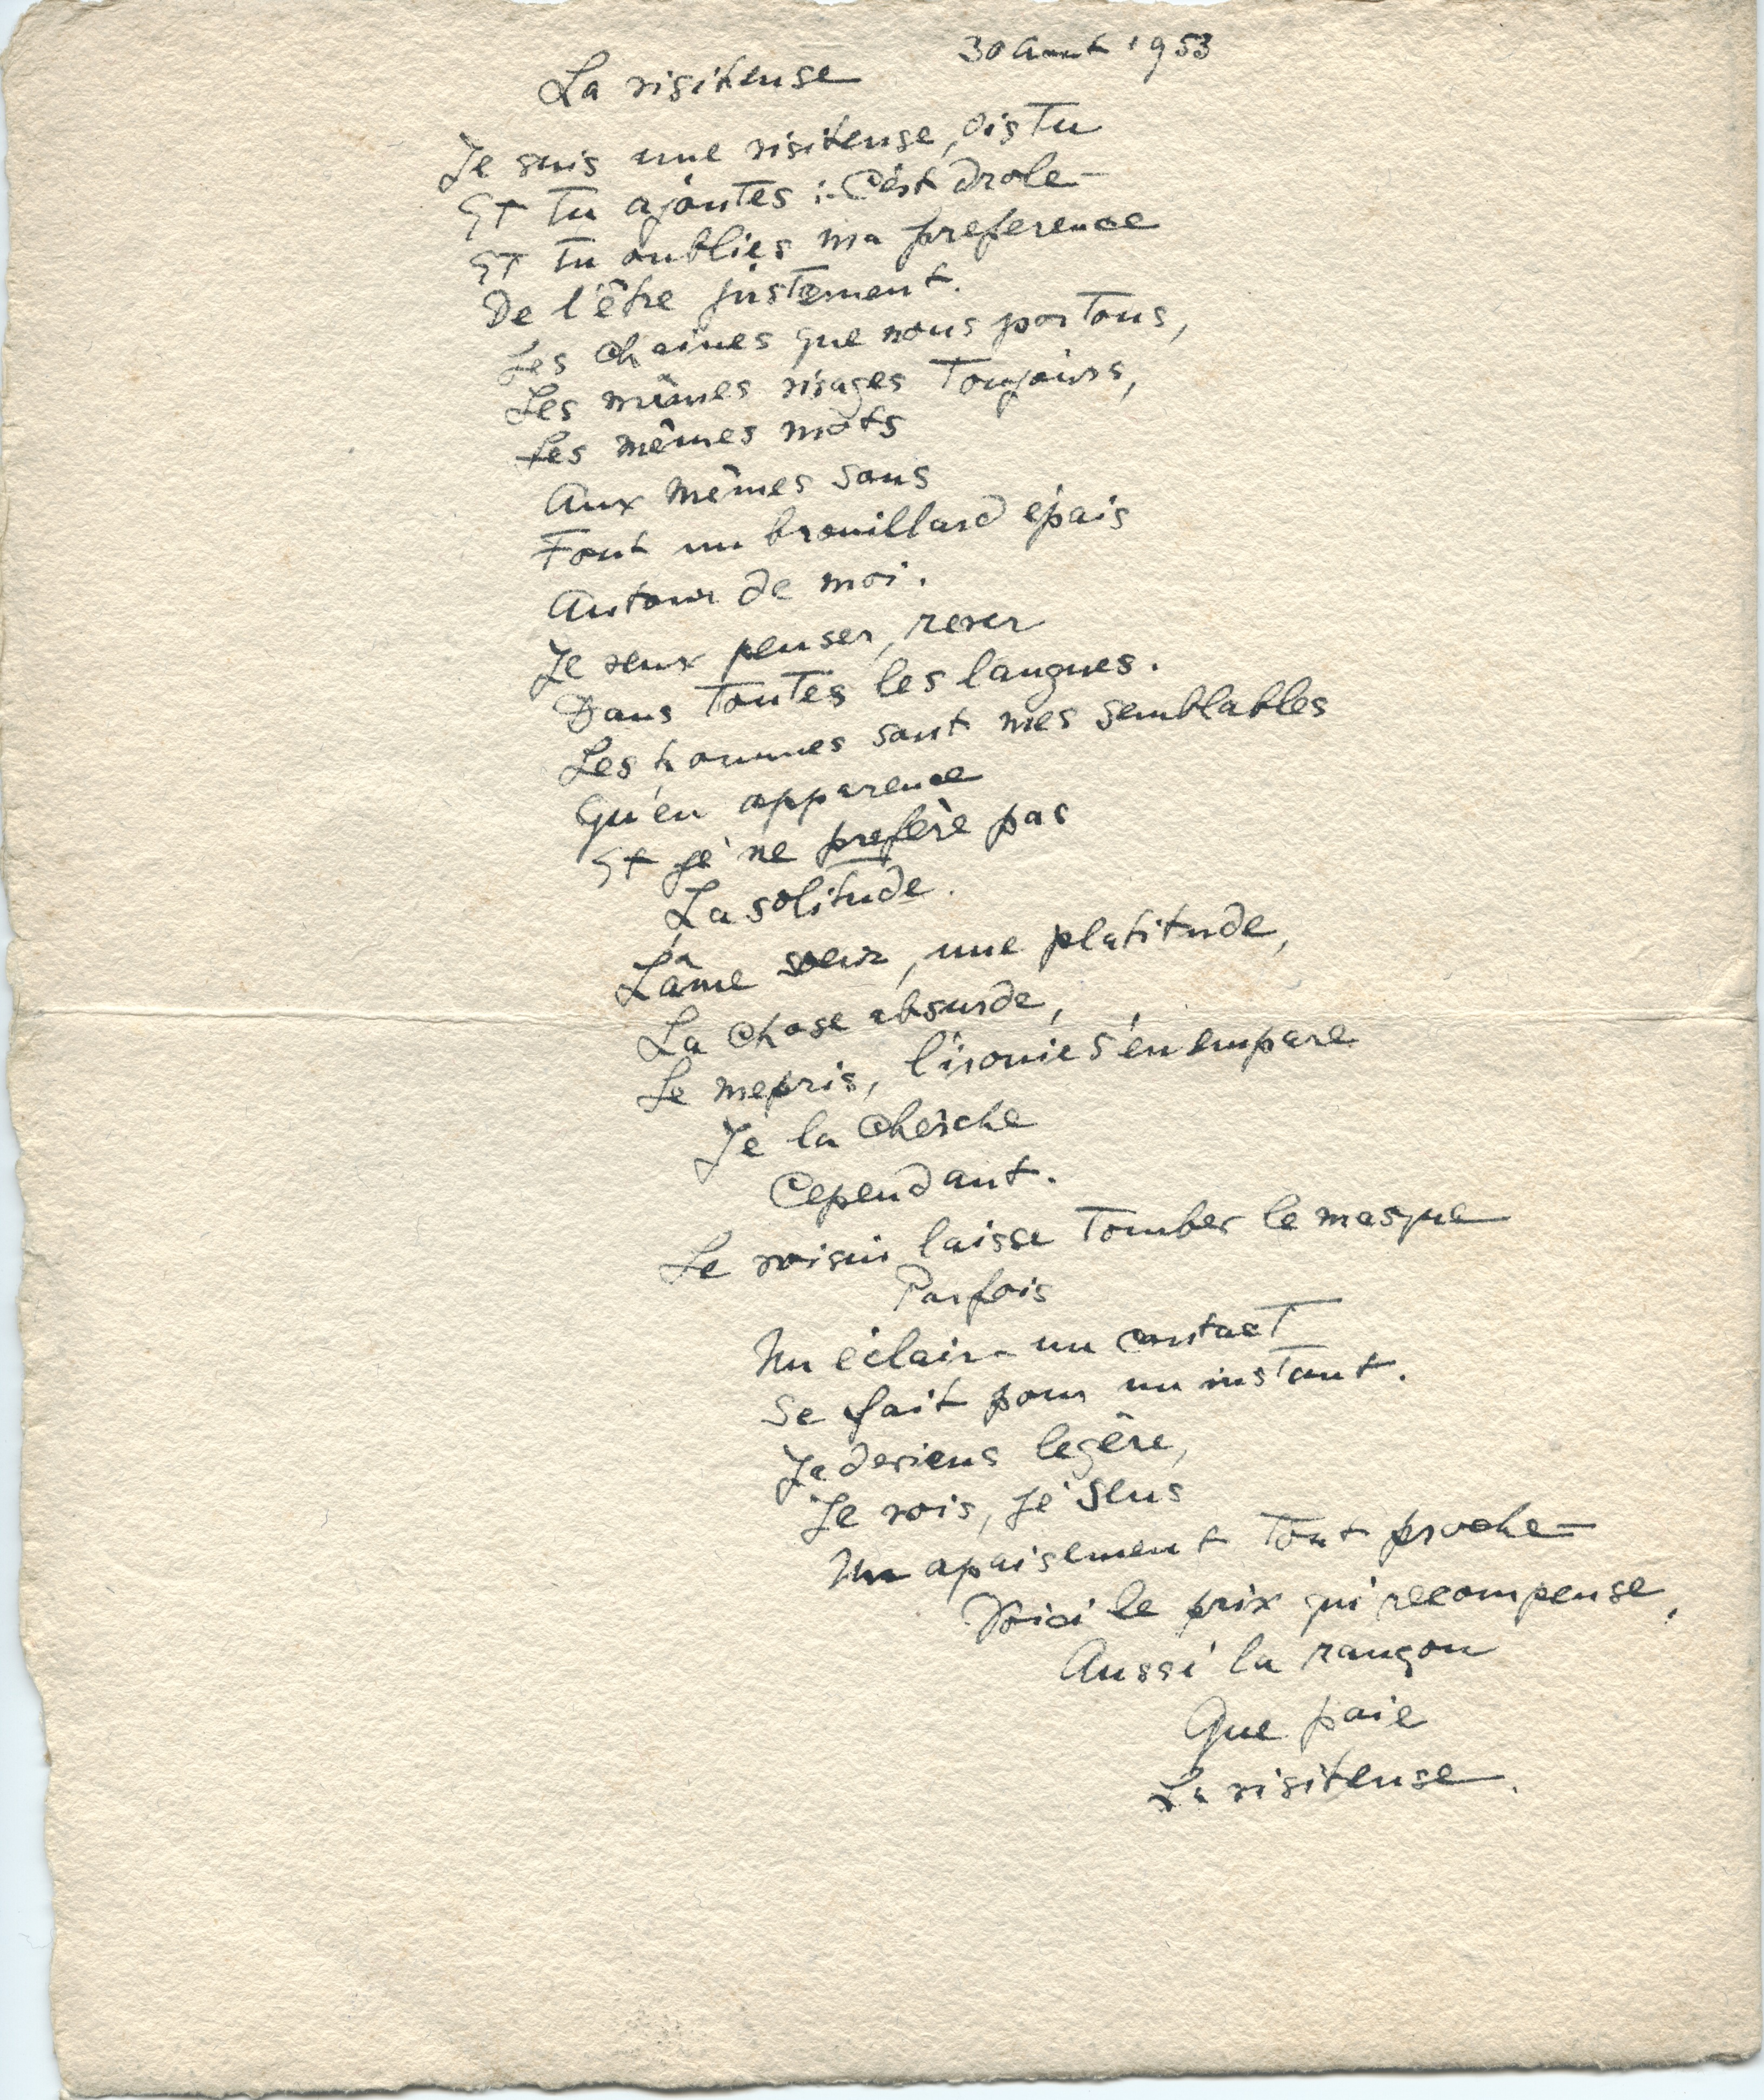 30 Aout 1953
La visiteuse
Je suis une visiteuse, dis Tu
Et Tu ajoutes :- C'est drole -
Et Tu oublies ma preference
De l'être justement.
Les chaines que nous portons,
Les mêmes visages Toujours,
Les mêmes mots
Aux mêmes sons
Font un brouillard épais
Autour de moi.
Je veux penser, rever
Dans Toutes les langues.
Les hommes sont mes semblables
Qu'en apparence
Et je ne prefère pas
La solitude.
L'âme sœur, une platitude,
La chose absurde,
Le mepris, l'ironie s'en empare
Je la cherche
Cependant.
Le voisin laisse Tomber le masque
Parfois
Un éclair - un contact
Se fait pour un instant.
Je deviens legère,
Je vois, je sens
Un apaisement Tout proche -
Voici le prix qui recompense,
Aussi la rançon
Que paie
La visiteuse.